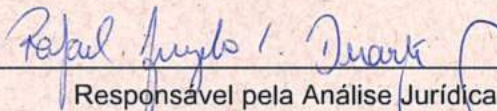 Rafael Duarte
Responsável pela Análise Jurídica